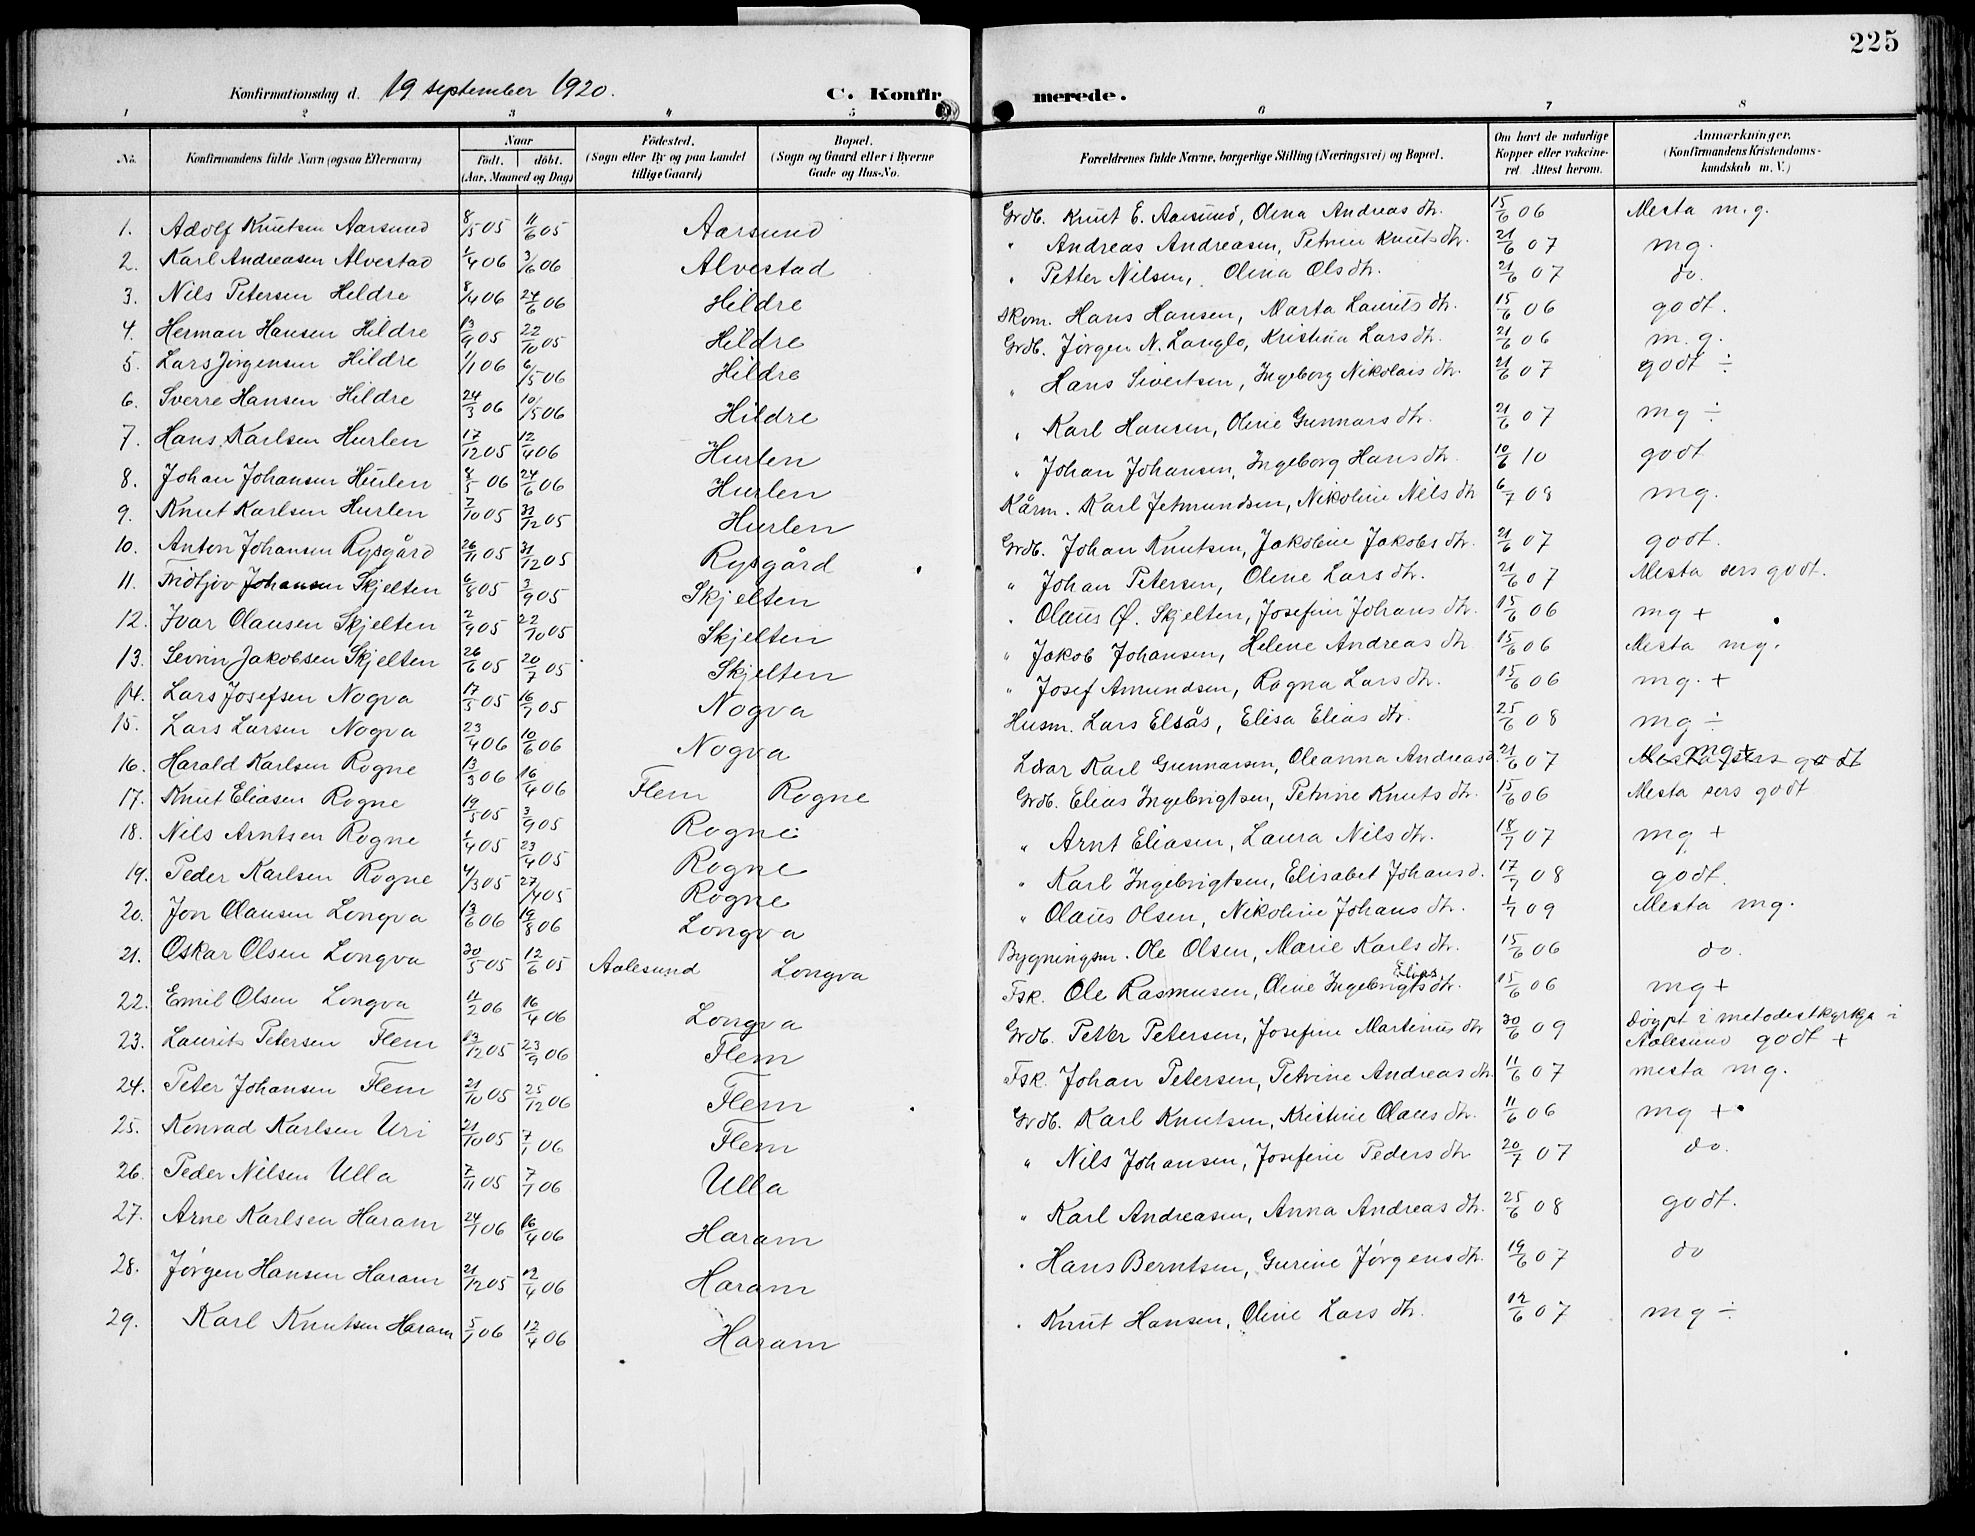 225
Konfirmationsdag d. 19 september 1920. C. Konfirmerede.
1 2 3 4 5 6 7 8
No. Konfirmandens fulde Navn (ogsaa Efternavn) Naar født. døbt. (Aar, Maaned og Dag) Födested. (Sogn eller By og paa Landet tillige Gaard) Bopæl. (Sogn og Gaard eller i Byerne Gade og Hus-No. Forældrenes fulde Navne, borgerlige Stilling (Næringsvei) og Bopæl. Om havt de naturlige Kopper eller vakcineret. Attest herom. Anmærkninger. (Konfirmandens Kristendomskundskab m. V.)
1. Adolf Knutsen Aarsund 8/5 05 11/6 05 Aarsund Grdb. Knut E. Aarsund, Olena Andreas dtr. 15/6 06 Mesta m.g.
2. Karl Andreasen Alvestad 1/4 06 3/6 06 Alvestad " Andreas Andreasen, Petrine Knuts dtr. 21/6 07 mg.
3. Nils Petersen Hildre 8/4 06 24/6 06 Hildre " Petter Nilsen, Olina Ols dtr. 21/6 07 do.
4. Herman Hansen Hildre 13/9 05 22/10 05 Hildre Skom. Hans Hansen, Marta Laurits dtr. 15/6 06 godt.
5. Lars Jørgensen Hildre 1/1 06 6/5 06 Hildre Grdb. Jørgen N. Longlo, Kristina Lars dtr. 21/6 06 m.g.
6. Sverre Hansen Hildre 24/3 06 10/5 06 Hildre " Hans Sivertsen, Ingeborg Nikolais dtr. 21/6 07 godt ÷
7. Hans Karlsen Hurlen 17/12 05 12/4 06 Hurlen " Karl Hansen, Oline Gunnars dtr. 21/6 07 mg ÷
8. Johan Johansen Hurlen 8/5 06 24/6 06 Hurlen " Johan Johansen, Ingeborg Hans dtr. 10/6 10 godt
9. Knut Karlsen Hurlen 7/10 05 31/12 05 Hurlen Kårm. Karl Jetmundsen, Nikoline Nils dtr 6/7 08 mg.
10. Anton Johansen Rysgård 26/11 05 31/12 05 Rysgård Grdb. Johan Knutsen, Jakobine Jakobs dtr. 21/6 07 godt.
11. Fridtjov Johansen Skjelten 6/8 05 3/9 05 Skjelten " Johan Petersen, Oline Lars dtr. 21/6 07 Mesta sers godt.
12. Ivar Olausen Skjelten 2/9 05 22/10 05 Skjelten " Olaus Ø. Skjelten, Josefine Johans dtr. 15/6 06 mg +
13. Sevrin Jakobsen Skjelten 26/6 05 20/7 05 Skjelten " Jakob Johansen, Helene Andreas dtr 15/6 06 Mesta mg.
14. Lars Josefsen Nogva 17/5 05 16/7 05 Nogva " Josef Amundsen, Ragna Lars dtr. 15/6 06 mg. +
15. Lars Larsen Nogva 23/4 06 10/6 06 Nogva Husm. Lars Elsås, Elisa Elias dtr. 25/6 08 mg ÷
16. Harald Karlsen Rogne 13/3 06 16/4 06 Flem Rogne Lærar Karl Gunnarsen, Oleanna Andreasd. 21/6 07 mg + Mesta sers godt
17. Knut Eliasen Rogne 19/5 05 3/9 05 Rogne Grdb. Elias Ingebrigtsen, Petrine Knuts dtr. 15/6 06 Mesta sers godt
18. Nils Arntsen Rogne 1/4 05 23/4 05 Rogne " Arnt Eliasen, Laura Nils dtr. 18/7 07 mg +
19. Peder Karlsen Rogne 4/3 05 27/4 05 Rogne " Karl Ingebrigtsen, Elisabet Johansd. 17/7 08 godt.
20. Jon Olausen Longva 13/6 06 19/8 06 Longva " Olaus Olsen, Nikoline Johans dtr. 1/7 09 Mesta mg.
21. Oskar Olsen Longva 30/5 05 12/6 05 Aalesund Longva Bygningsm. Ole Olsen, Marie Karls dtr. 15/6 06 do.
22. Emil Olsen Longva 11/2 06 16/4 06 Longva Fsk. Ole Rasmusen, Oline Ingebrigts Elias dtr. 15/6 06 mg +
23. Laurits Petersen Flem 13/12 05 23/9 06 Flem Grdb. Peter Petersen, Josefine Martinus dtr 30/6 09 døypt i metodistkyrkja i Aalesund godt +
24. Peter Johansen Flem 21/10 05 25/12 06 Flem Fsk. Johan Petersen, Petrine Andreas dtr. 11/6 07 mesta mg.
25. Konrad Karlsen Uri 21/10 05 7/1 06 Flem Grdb. Karl Knutsen, Kristine Olaus dtr. 11/6 06 mg +
26. Peder Nilsen Ulla 7/11 05 7/1 06 Ulla " Nils Johansen, Josefine Peders dtr 20/7 07 do.
27. Arne Karlsen Haram 24/1 06 16/4 06 Haram " Karl Andreasen, Anna Andreas dtr. 25/6 08 godt.
28. Jørgen Hansen Haram 21/12 05 12/4 06 Haram " Hans Berntsen, Gurine Jørgens dtr. 19/6 07 do
29. Karl Knutsen Haram 5/1 06 12/4 06 Haram " Knut Hansen, Oline Lars dtr. 12/6 07 mg ÷